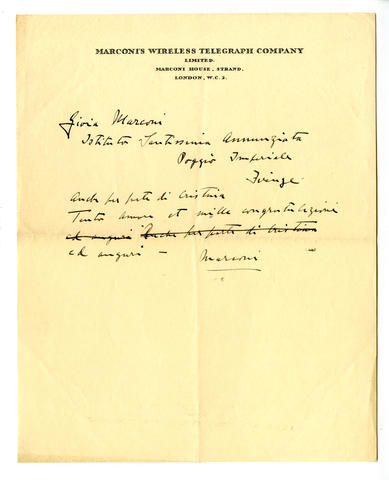 MARCONI'S WIRELESS TELEGRAPH COMPANY
LIMITED.
MARCONI HOUSE, STRAND,
LONDON, W.C. 2.
Gioia Marconi
Istituto Santissima Annunziata
Poggio Imperiale
Firenze
Anche per parte di Cristina
Tanto amore et mille congratulazioni
ed auguri Anche per parte di Cristina
ed auguri —
Marconi